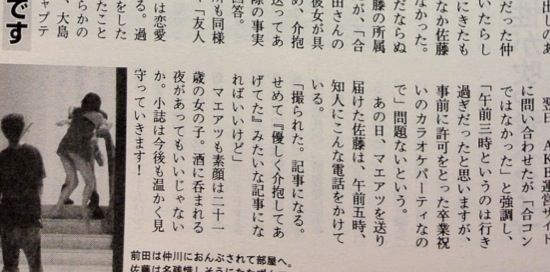 出しのあ
だった仲
いたらし
にきたも
なか佐藤
なかった。
だならぬ
藤の所属
が、「合
田さんの
彼女が具
め、介抱
送ってあ
際の事実
回答。
も同様
「友人
は恋愛
る。過
をした
たこと
、大島
らかの
ャプテ
です
翌日、AKB運営サイド
に問い合わせたが「合コン
ではなかった」と強調し、
「午前三時というのは行き
過ぎだったと思いますが、
事前に許可をとった卒業祝
いのカラオケパーティなの
で」問題ないという。
あの日、マエアツを送り
届けた佐藤は、午前五時、
知人にこんな電話をかけて
いる。
「撮られた。記事になる。
せめて『優しく介抱してあ
げてた』みたいな記事にな
ればいいけど」
マエアツも素顔は二十一
歳の女の子。酒に呑まれる
夜があってもいいじゃない
か。小誌は今後も温かく見
守っていきます!
前田は仲川におんぶされて部屋へ。
佐藤は名残惜しそうに